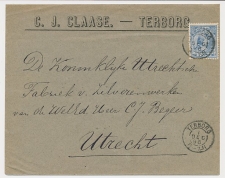 C. J. CLAASE. — TERBORG
De Koninklijke Utrechtsche
Fabriek v. Zilverenwerken
van de WelEd. Heer C. J. Begeer
Utrecht
TERBORG